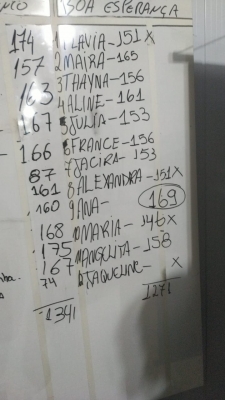 NCO BOA ESPERANÇA
174 1 FLAVIA-151 X
157 2 MAIRA-165
163 3 THAYNA-156
4 ALINE-161
167 5 JULIA-153
166 6 FRANCE-156
87 7 JACIRA-153
161 8 ALEXANDRA-151X
160 9 ANA- 169
168 10 MARIA-146X
175 11 ANGELITA-158
167 12 JAQUELINE- X
74
1341 1271